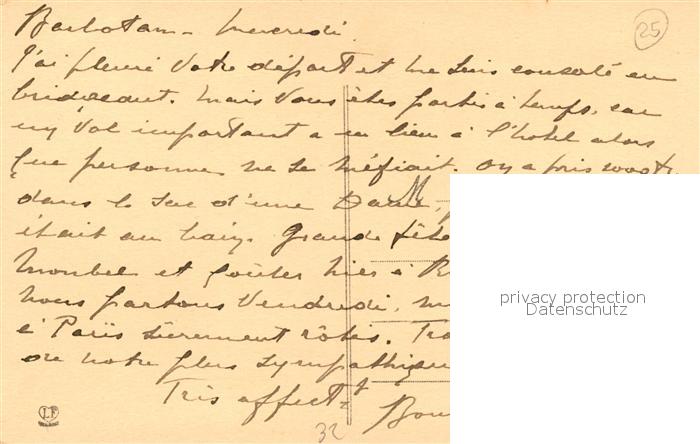 Barbotan - Mercredi.
25
J'ai pleuré votre départ et me suis consolé en
bridgeant. Mais vous êtes partis à temps, car
un vol important a eu lieu à l'hôtel alors
que personne ne se méfiait. On a pris
dans le sac d'une Dame,
était au bain. Grande fête
et goûter hier à
nous partons Vendredi,
à Paris sûrement rôtis.
de notre plus sympathique
Très affect.t
32
LF
privacy protection
Datenschutz